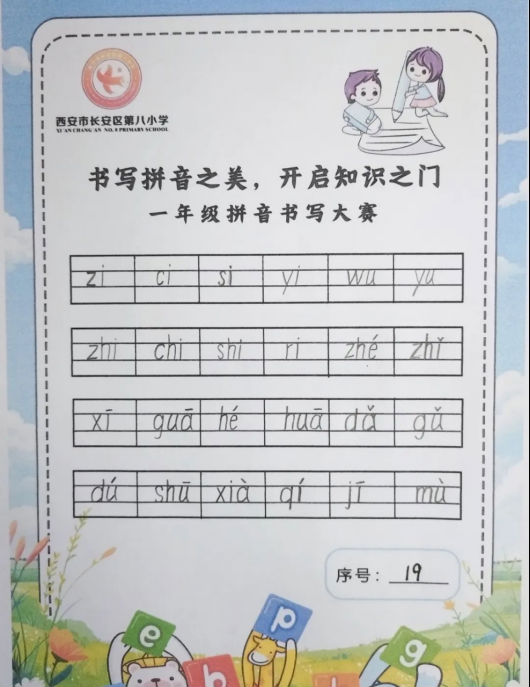 西安市长安区第八小学
XI'AN CHANG'AN NO. 8 PRIMARY SCHOOL
书写拼音之美，开启知识之门
一年级拼音书写大赛
zi ci si yi wu yu
zhi chi shi ri zhé zhǐ
xī guā hé huā dǎ gǔ
dú shū xià qí jī mù
序号：19
e p g
h